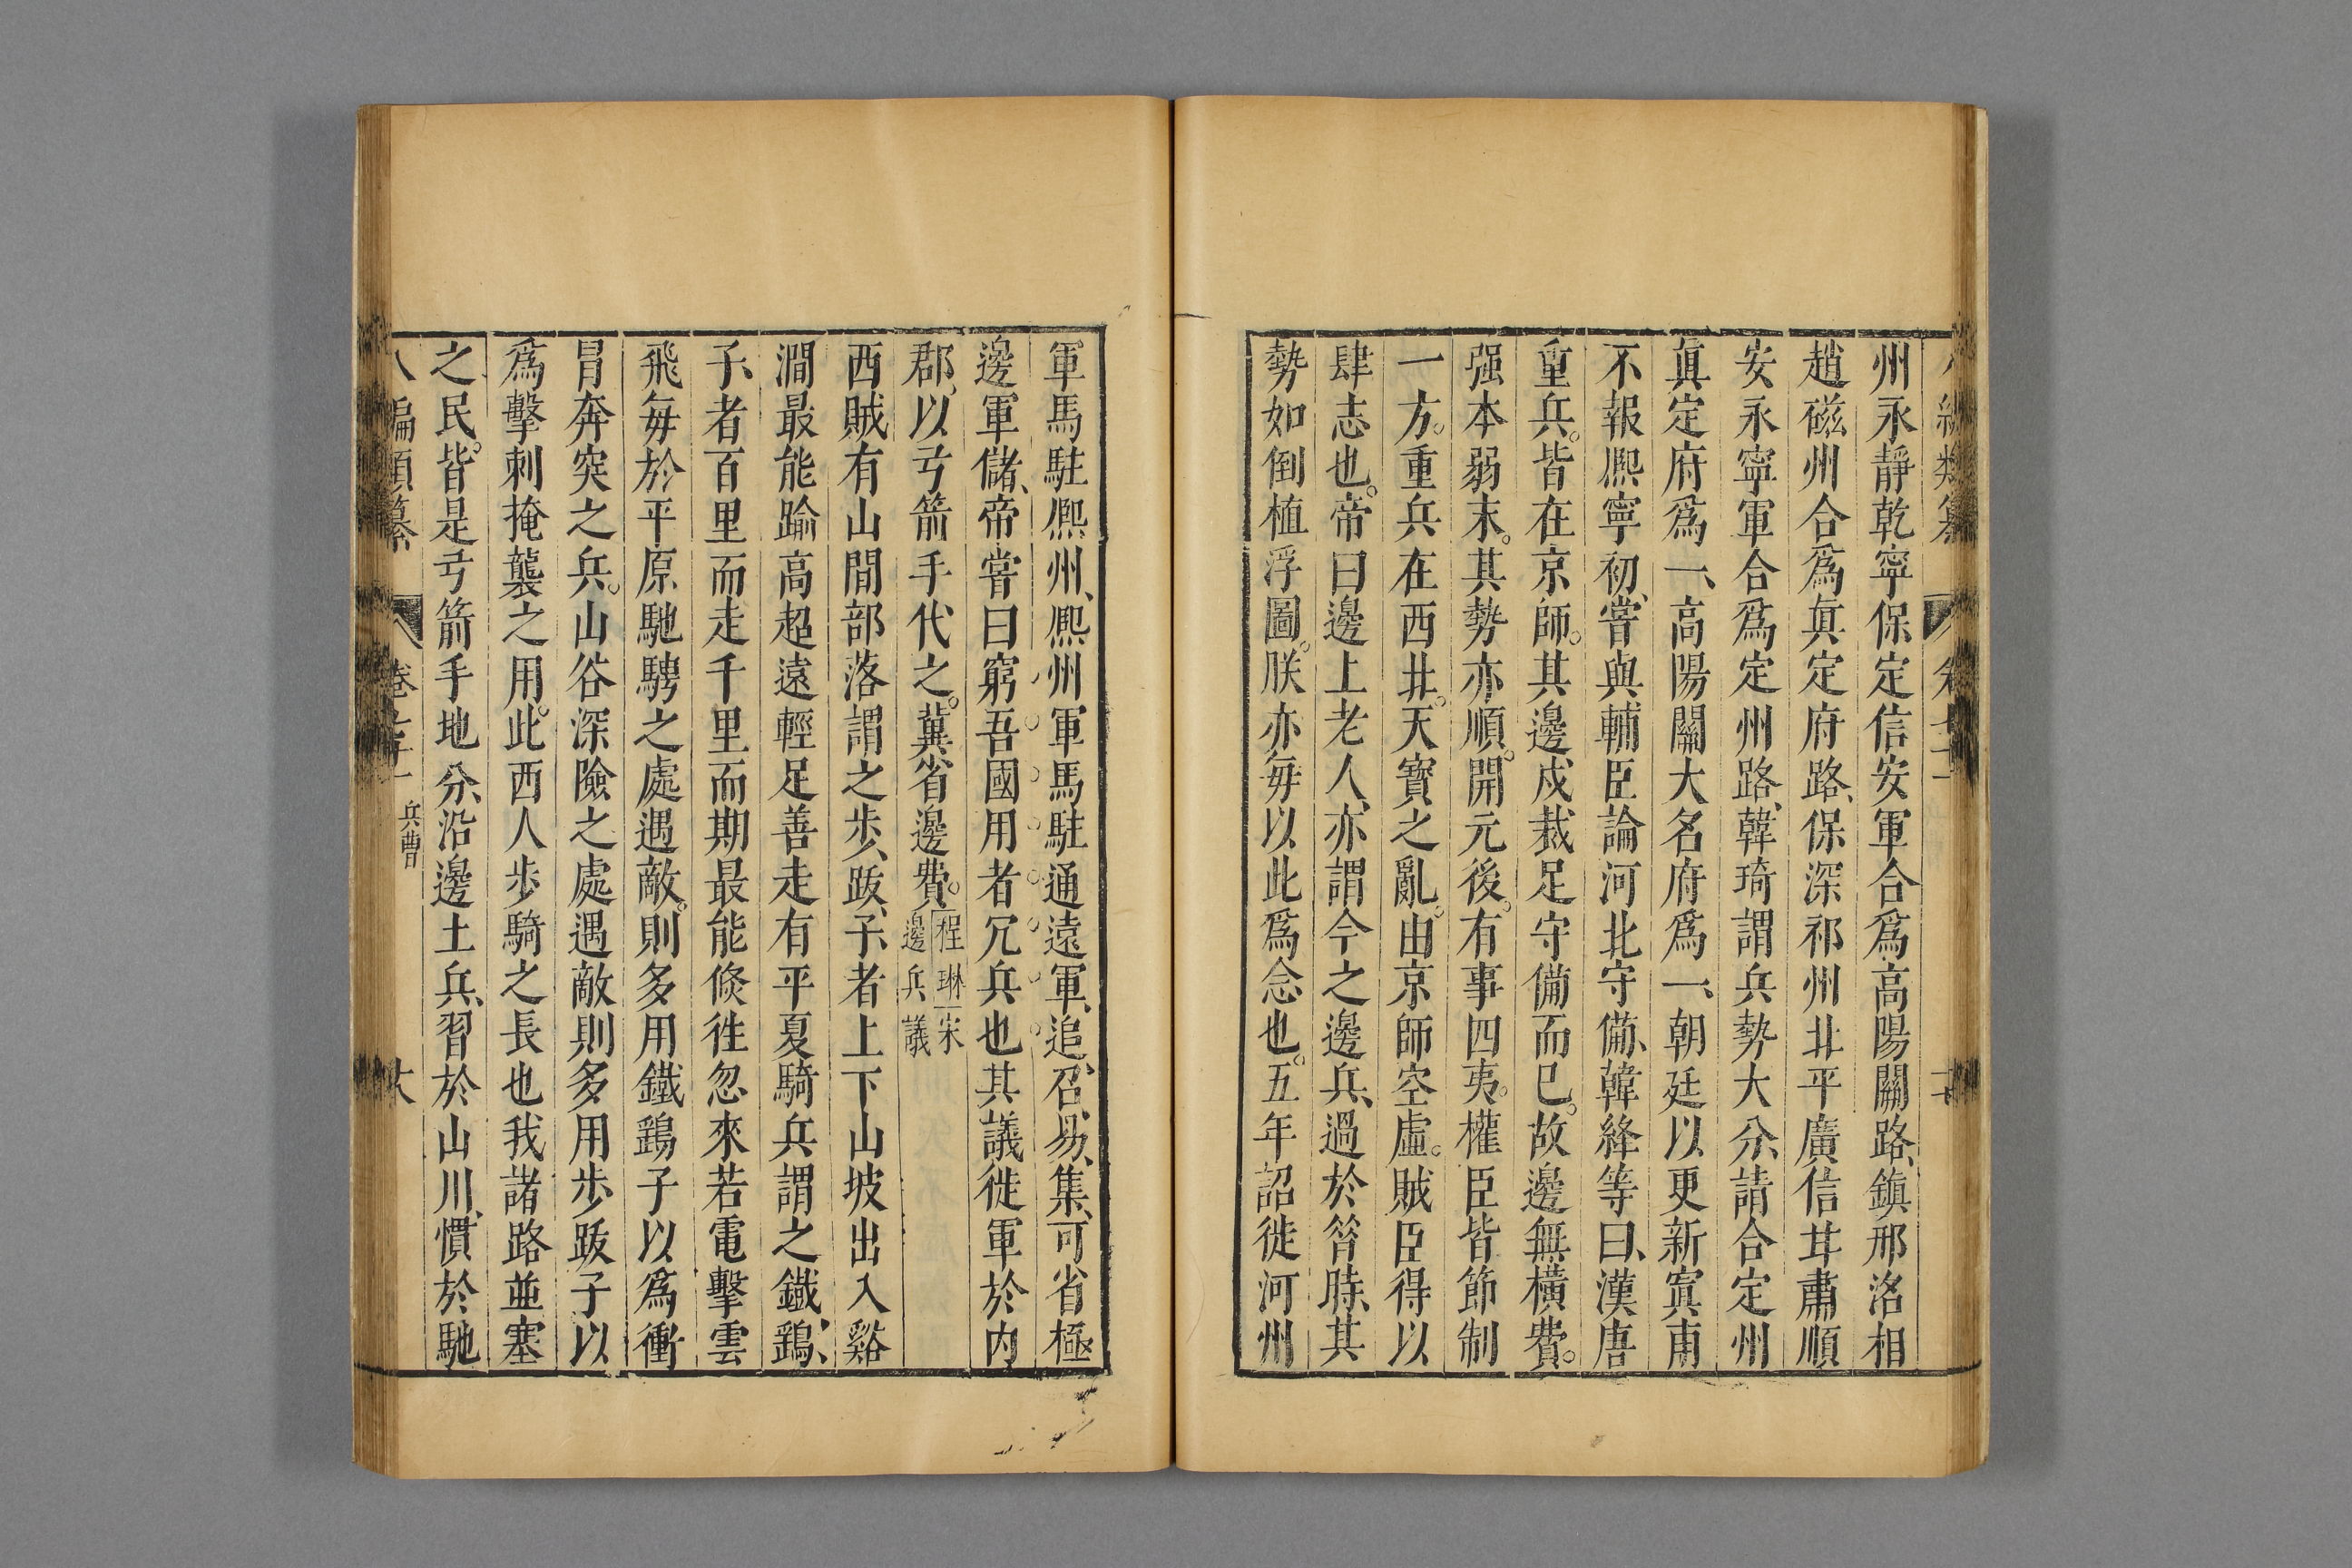 州永靜乾寧保定信安軍合爲高陽關路、鎮邢洺相
趙磁州合爲眞定府路、保深祁州北平廣信安肅順
安永寧軍合爲定州路、韓琦謂兵勢大分、請合定州
眞定府爲一、高陽關大名府爲一、朝廷以更新寘甭
不報熈寧初、嘗與輔臣論河北守備、韓絳等曰、漢唐
重兵。皆在京師。其邊戍裁足守備而已。故邊無橫費。
强本弱末。其勢亦順。開元後。有事四夷。權臣皆節制
一方。重兵在西北。天寶之亂。由京師空虛。賊臣得以
肆志也。帝曰邊上老人、亦謂今之邊兵、過於昝時、其
勢如倒植浮圖。朕亦每以此爲念也。五年詔徙河州
軍馬駐熈州、熈州軍馬駐通遠軍、追召易集、可省極
邊軍儲、帝嘗曰窮吾國用者冗兵也其議徙軍於内
郡、以弓箭手代之。冀省邊費。程琳宋
邊兵議
西賊有山間部落謂之步、跋、子、者上下山坡出入谿
澗最能踰高超遠輕足善走有平夏騎兵謂之鐵、鷂、
子、者百里而走千里而期最能倏徃忽來若電擊雲
飛每於平原馳騁之處遇敵。則多用鐵鷂子以爲衝
冒奔突之兵。山谷深險之處遇敵則多用步跋子以
爲擊刺掩襲之用。此西人步騎之長也我諸路並塞
之民。皆是弓箭手地分、沿邊土兵、習於山川、慣於馳
八編類纂 卷 兵曹